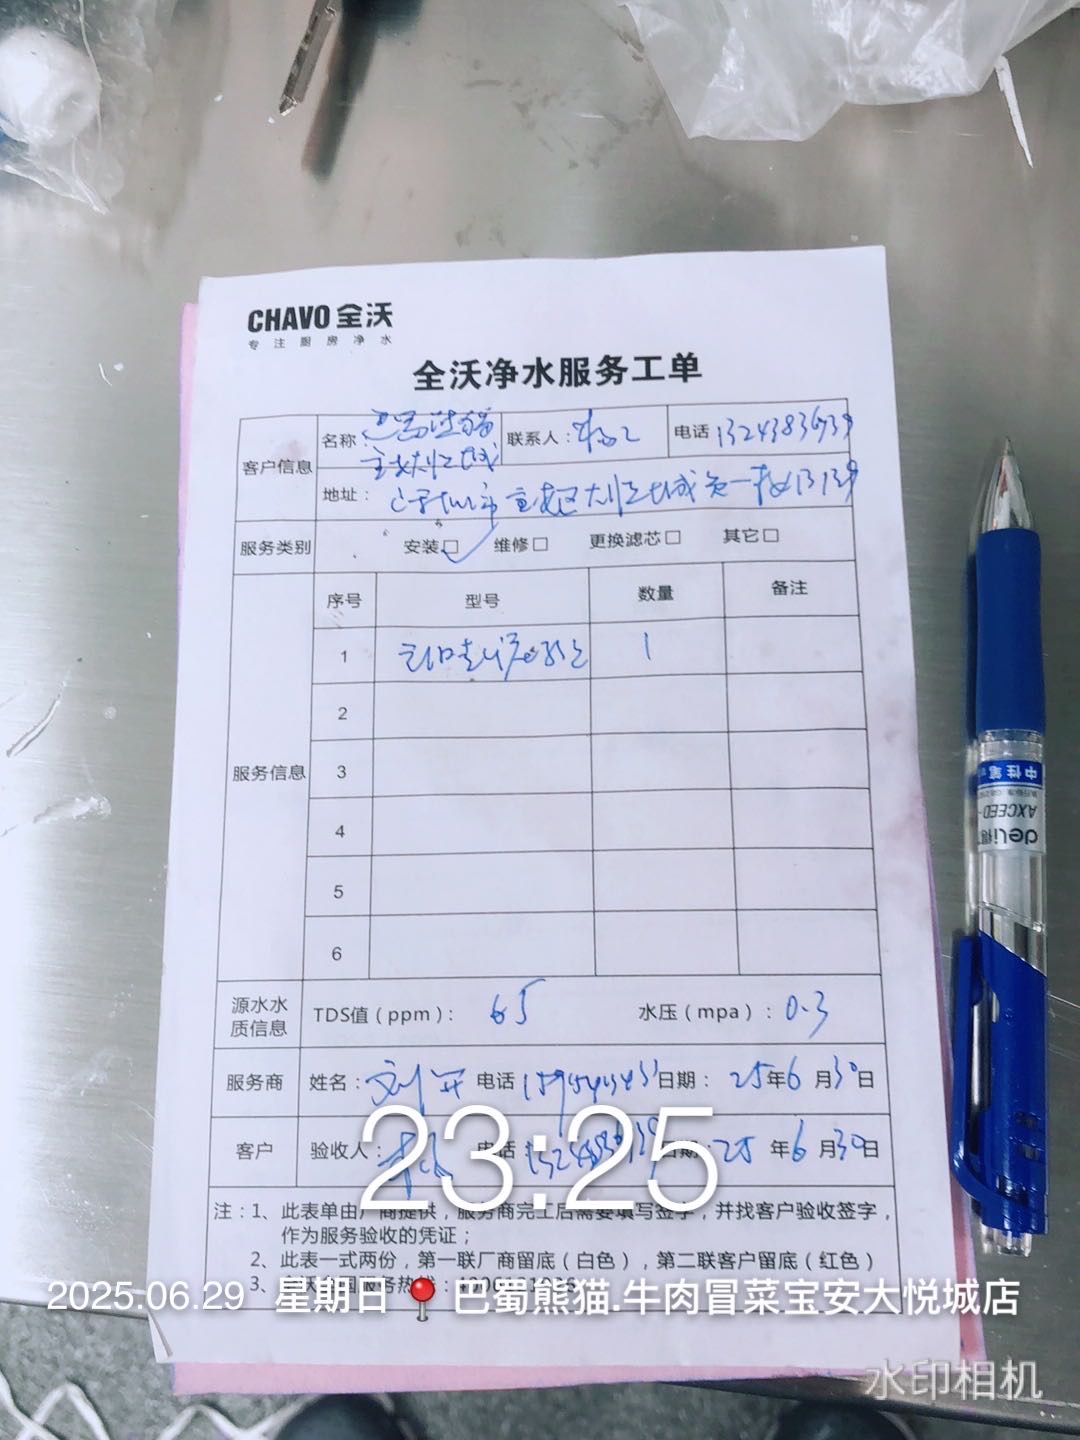 CHAVO 全沃
专注厨房净水
全沃净水服务工单
客户信息
名称：巴蜀熊猫
宝安大悦城
联系人：杨
电话
地址：深圳市宝安区大悦城负一楼
服务类别
安装☑ 维修□ 更换滤芯□ 其它□
服务信息
序号 型号 数量 备注
1 1
2
3
4
5
6
源水水质信息
TDS值（ppm）： 65 水压（mpa）：0.3
服务商 姓名：刘 电话 日期：25年6月30日
客户 验收人： 电话 日期：25年6月30日
23:25
注：1、此表单由厂商提供，服务商完工后需要填写签字，并找客户验收签字，
作为服务验收的凭证；
2、此表一式两份，第一联厂商留底（白色），第二联客户留底（红色）
3、全沃全国服务热线：
2025.06.29 星期日 巴蜀熊猫.牛肉冒菜宝安大悦城店
水印相机
中性笔
AXCEED
deli